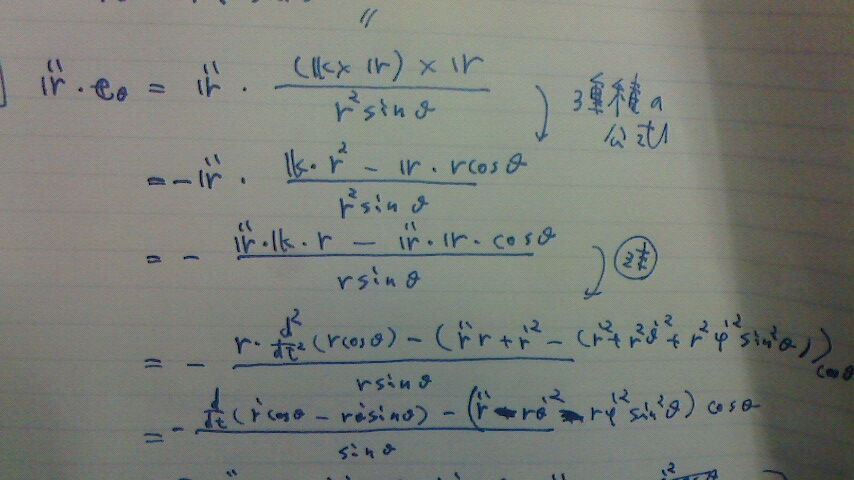 𝕣̈ · 𝕖θ = 𝕣̈ · ((𝕜 × 𝕣) × 𝕣) / (r² sin θ)
3重積の
公式
= − 𝕣̈ · (𝕜 · r² − 𝕣 · r cos θ) / (r² sin θ)
= − (𝕣̈ · 𝕜 · r − 𝕣̈ · 𝕣 · cos θ) / (r sin θ)
= − (r · d²/dt² (r cos θ) − (r̈ r + ṙ² − (ṙ² + r² θ̇² + r² φ̇² sin² θ)) cos θ) / (r sin θ)
= − (d/dt (ṙ cos θ − r θ̇ sin θ) − (r̈ − r θ̇² − r φ̇² sin² θ) cos θ) / (sin θ)